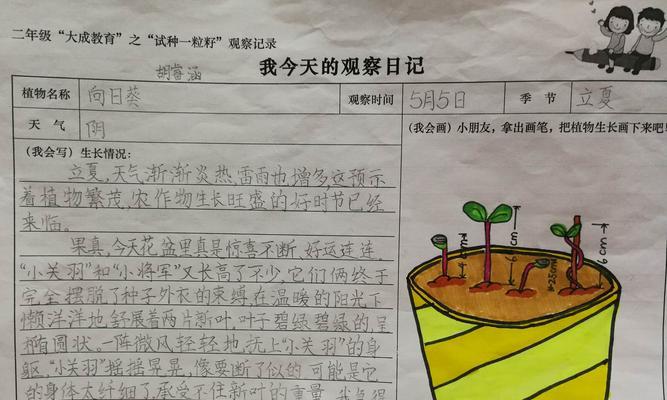 二年级“大成教育”之“试种一粒籽”观察记录
我今天的观察日记
胡睿涵
植物名称 向日葵 观察时间 5月5日 季节 立夏
天气 阴
(我会画)小朋友,拿出画笔,把植物生长画下来吧!
(我会写)生长情况:
立夏,天气渐渐炎热,雷雨也增多,这预示
着植物繁茂,农作物生长旺盛的好时节已经
来临。
果真,今天花盆里真是惊喜不断,好运连连。
“小关羽”和“小将军”又长高了不少,它们俩终于
完全摆脱了种子外衣的束缚,在温暖的阳光下
懒洋洋地舒展着两片新叶,叶子碧绿碧绿的,呈
椭圆状。一阵微风轻轻地抚上“小关羽”的身
躯,“小关羽”摇摇晃晃,像要断了似的,可能是它
的身体太纤细了,承受不住新叶的重量,我急得
4cm
6cm
2.5cm
6cm